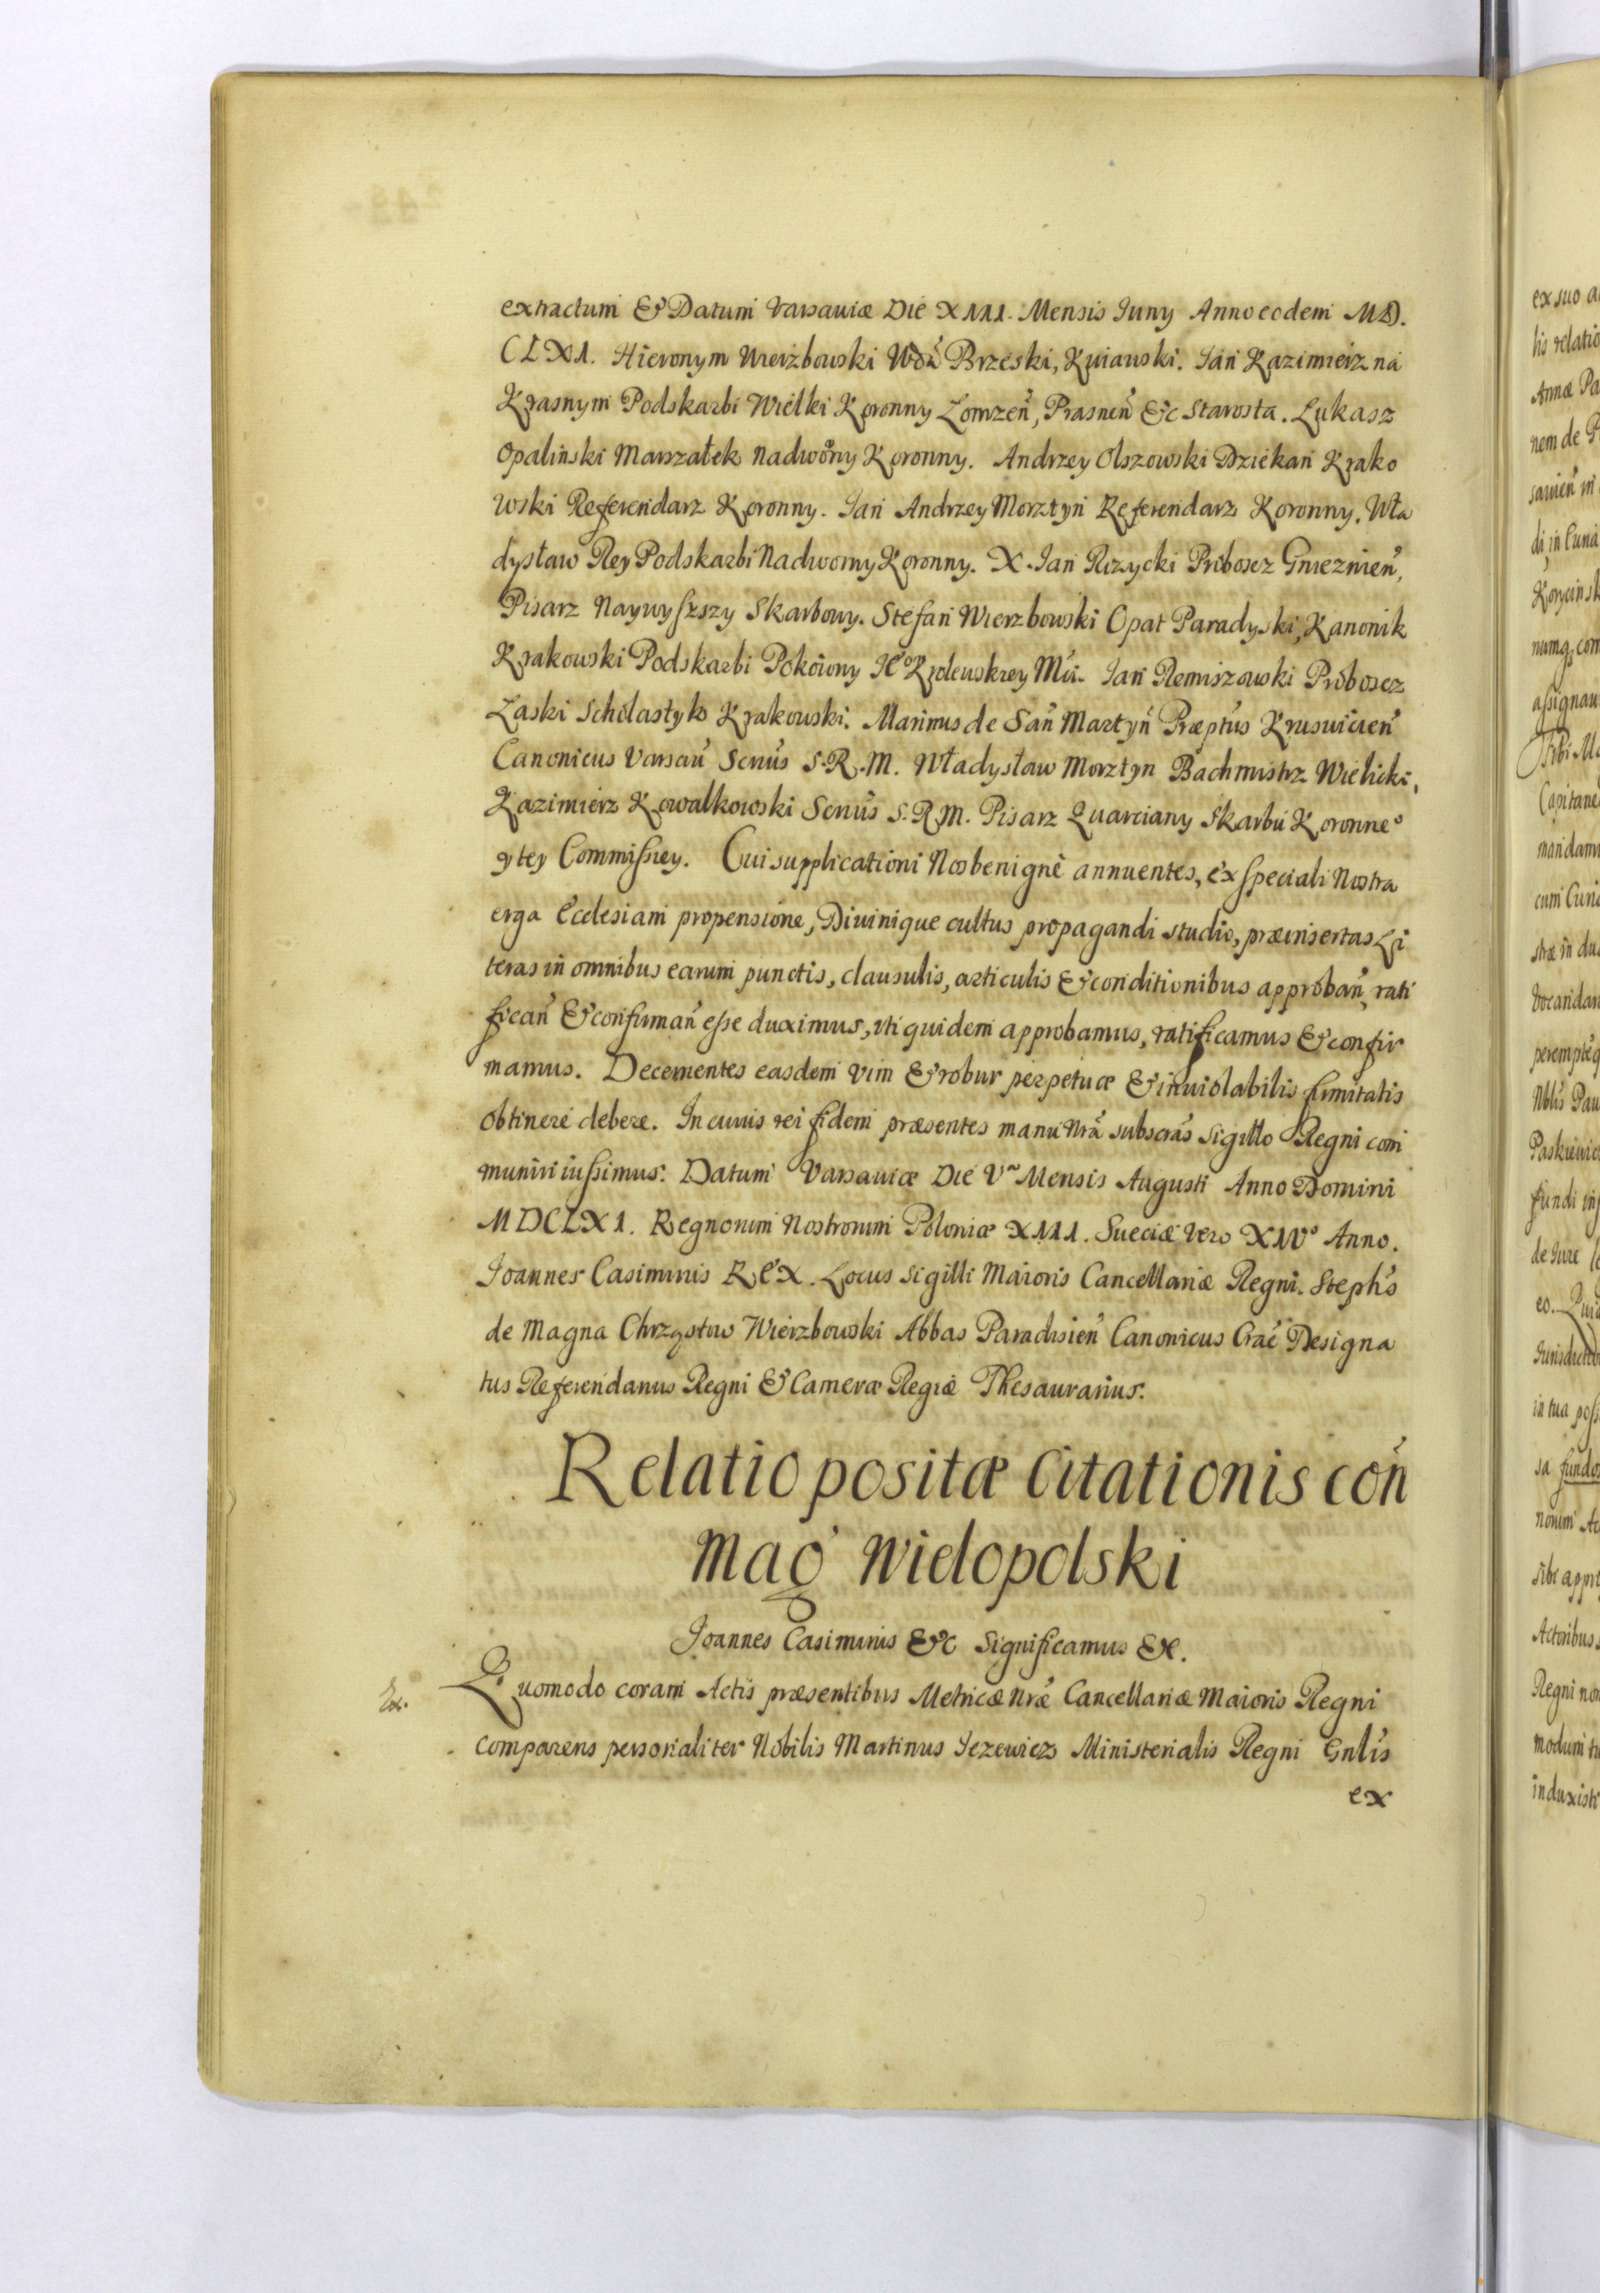 extractum & Datum Varsaviæ Die XIII. Mensis Iuny Anno eodem MD.
CLXI. Hieronym Wierzbowski Wdã Brzeski, Kuiauski. Ian Kazimierz na
Krasnym Podskarbi Wielki Koronny Lomzeñ, Prasneñ &c Starosta. Lukasz
Opalinski Marszałek nadworny Koronny. Andrzey Olszowski Dziekan Krako
wski Referendarz Koronny. Ian Andrzey Morztyn Referendarz Koronny. Wła
dysław Rey Podskarbi Nadworny Koronny. X. Ian Rozycki Probosz Gniezнieñ,
Pisarz Naywyższy Skarbowy. Stefan Wierzbowski Opat Paradyski, Kanonik
Krakowski Podskarbi Pokoiowy Ie° Krolewskiey Mci. Ian Remiszowski Probosez
Laski Scholastyk Krakowski. Marinus de San Martyn Præptus Krusvicieñ
Canonicus Varsaũ Serũs S.R.M. Władysław Morztyn Bachmistrz Wielicki,
Kazimierz Kowalkowski Serũs S.R.M. Pisarz Quarciany Skarbu Koronne°
y tey Commissiey. Cui supplicationi Nos benignè annuentes, ex speciali Nostra
erga Ecclesiam propensione, Divinique cultus propagandi studio, præinsertas Li
teras in omnibus earum punctis, clausulis, articulis & conditionibus approbañ, rati
ficañ & confirmañ esse duximus, uti quidem approbamus, ratificamus & confir
mamus. Decernentes easdem vim & robur perpetuæ & inviolabilis firmitatis
obtinere debere. In cuius rei fidem præsentes manu Nrã subscrãs Sigillo Regni com
muniri iussimus. Datum Varsaviæ Die V Mensis Augusti Anno Domini
MDCLXI. Regnorum Nostrorum Poloniæ XIII. Sueciæ vero XIV° Anno.
Ioannes Casimirus Rex. Locus Sigilli Maioris Cancellariæ Regni. Stephs
de Magna Chrząstow Wierzbowski Abbas Paradisieñ Canonicus Crac Designa
tus Referendarius Regni & Cameræ Regiæ Thesaurarius.
Relatio positæ Citationis coñ
Mag Wielopolski
Ioannes Casimirus &c Significamus &c.
Ex. Quomodo coram Actis præsentibus Metricæ Nræ Cancellariæ Maioris Regni
comparens personaliter Nobilis Martinus Iezewicz Ministerialis Regni Gnlis
ex